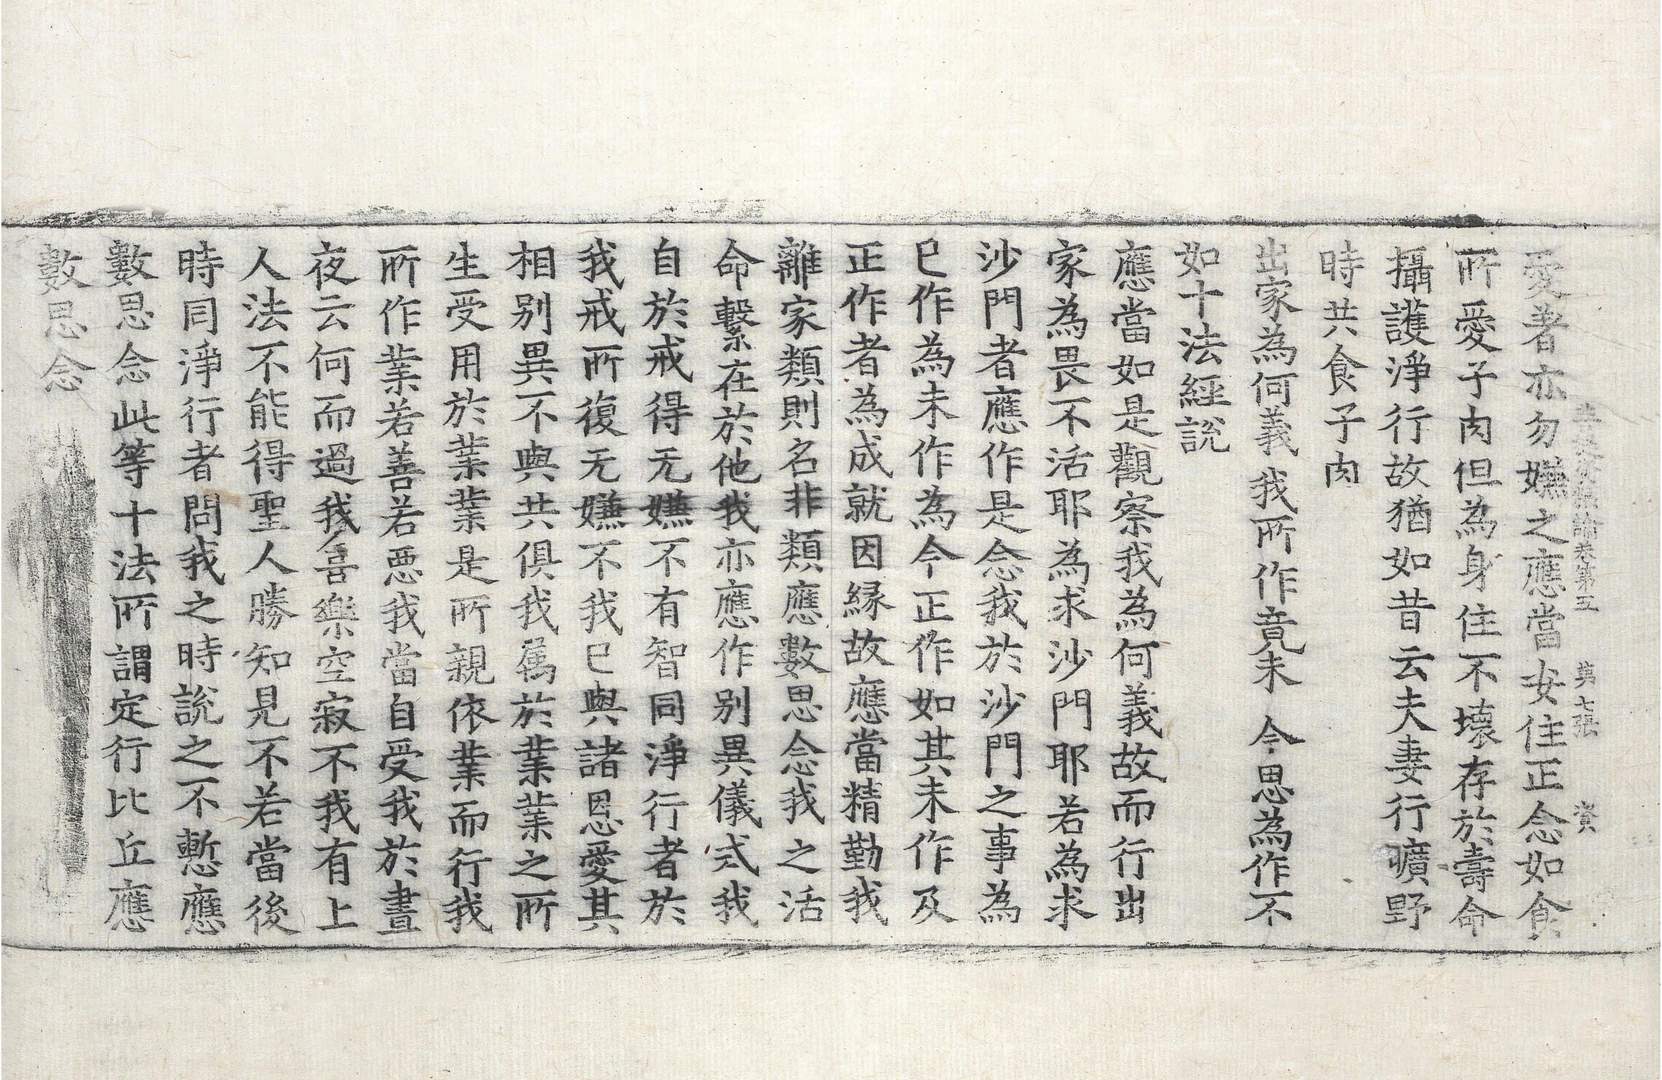 立世阿毗曇論卷第五 第七張 資
愛著亦勿嫌之應當安住正念如食
所愛子肉但為身住不壞存於壽命
攝護淨行故猶如昔云夫妻行曠野
時共食子肉
出家為何義 我所作竟未 今思為作不
如十法經說
應當如是觀察我為何義故而行出
家為畏不活耶為求沙門耶若為求
沙門者應作是念我於沙門之事為
已作為未作為今正作如其未作及
正作者為成就因緣故應當精勤我
離家類則名非類應數思念我之活
命繫在於他我亦應作別異儀式我
自於戒得无嫌不有智同淨行者於
我戒所復无嫌不我已與諸恩愛其
相別異不與共俱我屬於業業之所
生受用於業業是所親依業而行我
所作業若善若惡我當自受我於晝
夜云何而過我喜樂空寂不我有上
人法不能得聖人勝知見不若當後
時同淨行者問我之時說之不慙應
數思念此等十法所謂定行比丘應
數思念